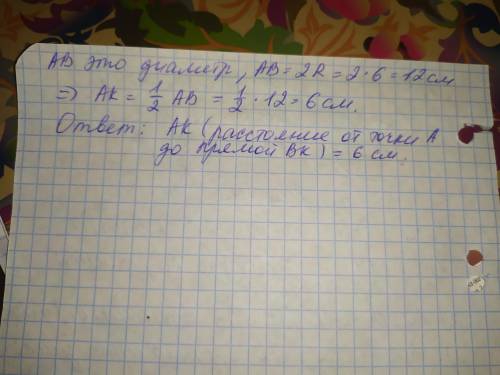 АВ это диаметр, АВ = 2R = 2·6 = 12 см
⇒ АК = 1/2 АВ = 1/2 · 12 = 6 см.
Ответ: АК (расстояние от точки А
до прямой ВК) = 6 см.